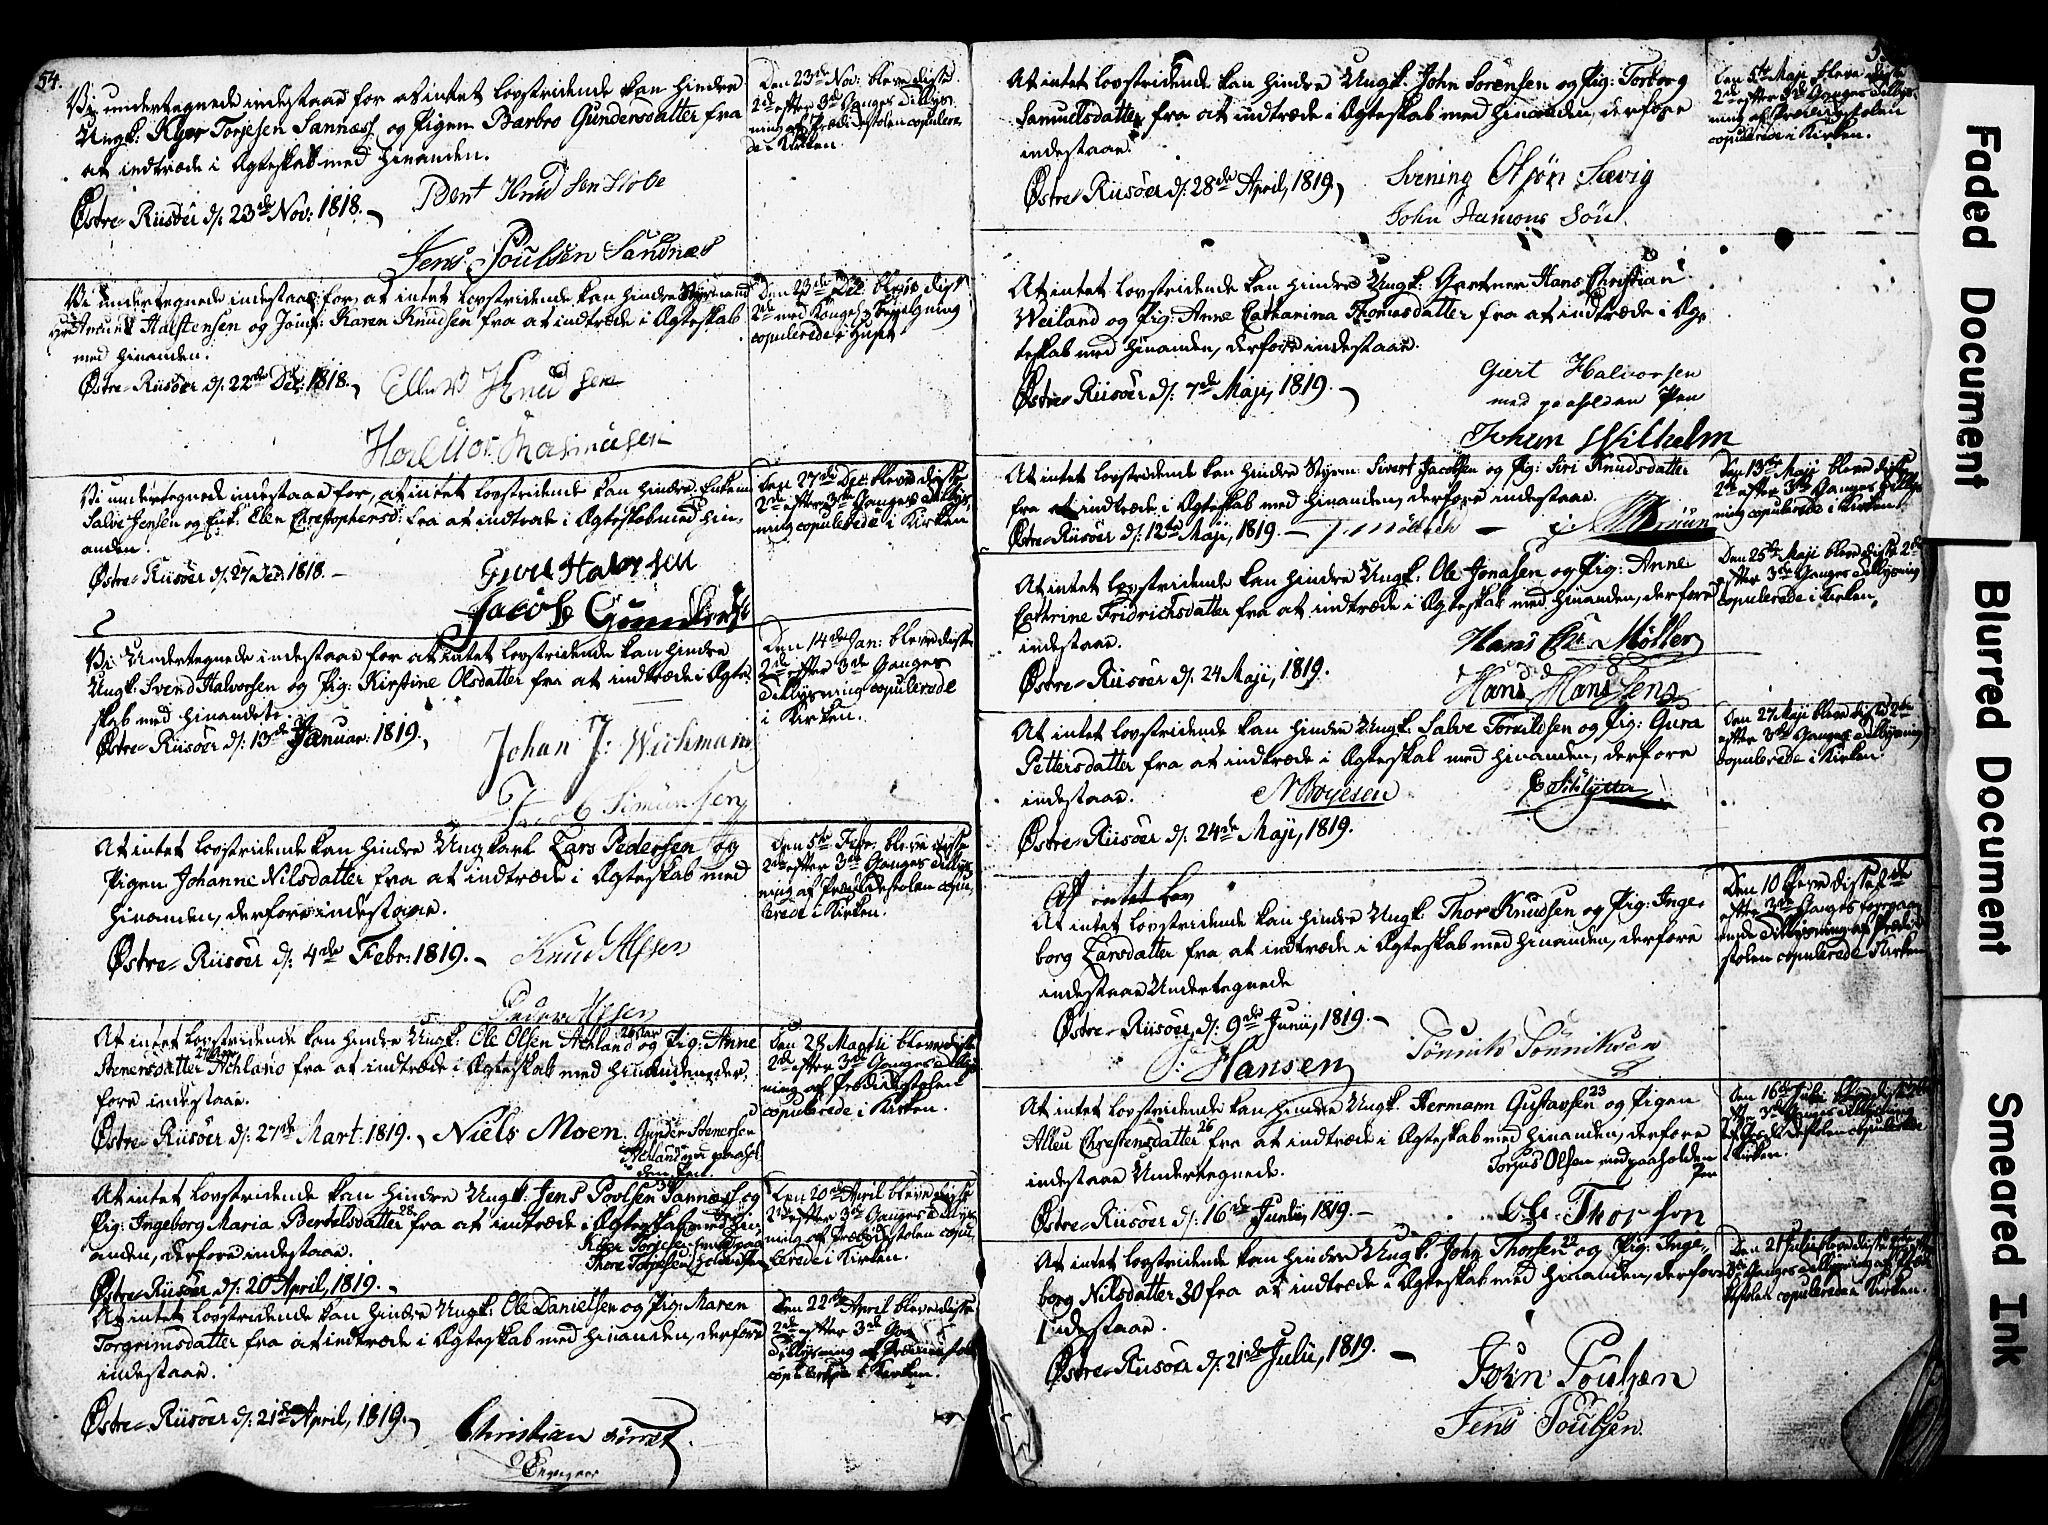 54.
Vi undertegnede indestaae for at intet lovstridende kan hindre
Ungk: Kyer Torjesen Sannæss og Pigen Barbro Gundersdatter fra
at indtræde i Ægteskab med hinanden.
Østre-Riisöer d: 23de Nov: 1818.
Bent Knudsen
Jens Poulsen Sandnæs
Den 23de Nov: bleve disse
2de efter 3de Ganges Tillys-
ning af Prædikestolen copulere-
de i Kirken.
Vi undertegnede indestaae for, at intet lovstridende kan hindre Styrmand
Halstensen og Jomf: Karen Knudsen fra at indtræde i Ægteskab
med hinanden.
Østre-Riisöer d: 22de Dec: 1818.
Knudsen
Halvor Rasmusen
Den 23de Dec bleve disse
2de med Konge Bevilgning
copulerede i Huset
Vi undertegnede indestaae for, at intet lovstridende kan hindre Enkem
Salve Jensen og Enk: Elen Christophersd: fra at indtræde i Ægteskab med hin-
anden.
Østre-Riisöer d: 27 Dec. 1818.
Giert Halvorsen
Jacob Gunders
Den 27de Dec bleve disse
2de efter 3de Ganges Tillys-
ning copulerede i Kirken
Vi Undertegnede indestaae for at intet lovstridende kan hindre
Ungk: Svend Halvorsen og Pig: Kirstine Olsdatter fra at indtræde i Ægte-
skab med hinanden.
Østre-Riisöer d: 13de Januar: 1819.
Johan J: Wichmann
Jacob Simonsen
Den 14de Jan: bleve disse
2de efter 3de Ganges
Tillysning copulerede
i Kirken.
At intet lovstridende kan hindre Ungkarl Lars Pedersen og
Pigen Johanne Nilsdatter fra at indtræde i Ægteskab med
hinanden, derfore indestaae.
Østre-Riisöer d: 4de Febr: 1819.
Knud Alfsen
Peder Alfsen
Den 5te Febr. bleve disse
2de efter 3de Ganges Tillys-
ning af Prædikestolen copu-
lerede i Kirken.
At intet lovstridende kan hindre Ungk: Ole Olsen Aehland og Pig: Anne
Stenersdatter Aehland fra at indtræde i Ægteskab med hinanden, der-
fore indestaae.
Østre-Riisöer d: 27de Mart: 1819.
Niels Moen
Gunder Stenersen
med paahol-
den Pen.
Den 28 Martii bleve disse
2de efter 3de Ganges Tillys-
ning af Prædikestolen
copulerede i Kirken.
At intet lovstridende kan hindre Ungk: Jens Poulsen Sannæss og
Pig: Ingeborg Maria Bertelsdatter 28 fra at indtræde i Ægteskab med hin-
anden, derfore indestaae.
Kyer Torjesen
Thore Torjesen
Østre-Riisöer d: 20 April, 1819.
Den 20de April bleve disse
2de efter 3de Ganges Tillys-
ning af Prædikestolen copu-
lerede i Kirken.
At intet lovstridende kan hindre Ungk: Ole Danielsen og Pig: Maren
Torgrimsdatter fra at indtræde i Ægteskab med hinanden, derfore
indestaae.
Østre-Riisöer d: 21de April, 1819.
Christian
Den 22de April bleve disse
2de efter 3de
Tillysning af Prædikestolen
copulerede i Kirken.
At intet lovstridende kan hindre Ungk: John Sörensen og Pig: Torborg
Samuelsdatter fra at indtræde i Ægteskab med hinanden, derfore
indestaae.
Østre-Riisöer d: 28de April, 1819.
Svening Sævig
John Aamons Sön
Den 5te Maji bleve disse
2de efter 3de Ganges Tillys-
ning af Prædikestolen
copulerede i Kirken.
At intet lovstridende kan hindre Ungk: Gartner Hans Christian
Weiland og Pig: Anne Catharina Thomasdatter fra at indtræde i Æg-
teskab med hinanden, derfore indestaae.
Østre-Riisöer d: 7de Maji, 1819.
Giert Halvorsen
med paaholden Pen
Johan Wilhelm
At intet lovstridende kan hindre Styrm: Sivert Jacobsen og Pig: Siri Knudsdatter
fra at indtræde i Ægteskab med hinanden, derfore indestaae.
Østre-Riisöer d: 12te Maji, 1819.
Den 13de Maji bleve disse
2de efter 3de Ganges Tillys-
ning copulerede i Kirken.
At intet lovstridende kan hindre Ungk: Ole Jonasen og Pig: Anne
Cathrine Fridrichsdatter fra at indtræde i Ægteskab med hinanden, derfore
indestaae.
Østre-Riisöer d: 24 Maji, 1819.
Hans Chr. Möller
Hans Hansen
Den 25de Maji bleve disse 2de
efter 3de Ganges Tillysning
copulerede i Kirken.
At intet lovstridende kan hindre Ungk: Salve Torkildsen og Pig: Gura
Pettersdatter fra at indtræde i Ægteskab med hinanden, derfore
indestaae.
N Boyesen
C Schlytter
Østre-Riisöer d: 24de Maji, 1819.
Den 27 Maji bleve disse 2de
efter 3de Ganges Tillysning
copulerede i Kirken.
At intet lov
At intet lovstridende kan hindre Ungk: Thor Knudsen og Pig: Inge-
borg Larsdatter fra at indtræde i Ægteskab med hinanden, derfore
indestaae Undertegnede
Østre-Riisöer, d: 9de Junii, 1819.
Hansen
Tönnik Tönniksen
Den 10 bleve disse 2de
efter 3de Ganges foregaa-
ende Tillysning af Prædike-
stolen copulerede Kirken
At intet lovstridende kan hindre Ungk: Hermann Gustavsen 23 og Pigen
Alleu Christensdatter 26 fra at indtræde i Ægteskab med hinanden, derfore
indestaae Undertegnede.
Torjus Olsen med paaholden
Pen
Østre-Riisöer d: 16de Junii, 1819.
Ole Thorson
Den 16de bleve disse 2de
efter 3de Ganges Tillysning
af Prædikestolen copulerede
i Kirken.
At intet lovstridende kan hindre Ungk: John Thorsen 22 og Pig: Inge-
borg Nilsdatter 30 fra at indtræde i Ægteskab med hinanden, derfore
indestaae.
Østre-Riisöer d: 21de Julii, 1819.
John Poulsen
Jens Poulsen
Den 21 Julii bleve disse 2de efter
3de Ganges Tillysning af Prædi-
kestolen copulerede i Kirken.
Faded Document
Blurred Document
Smeared Ink